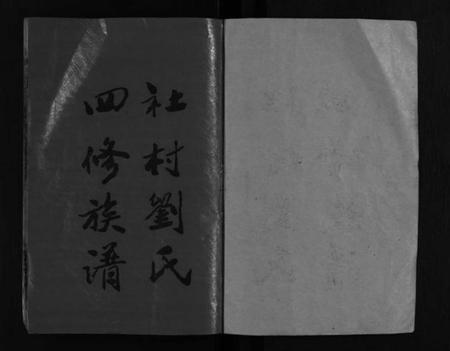 社村劉氏
四修族譜